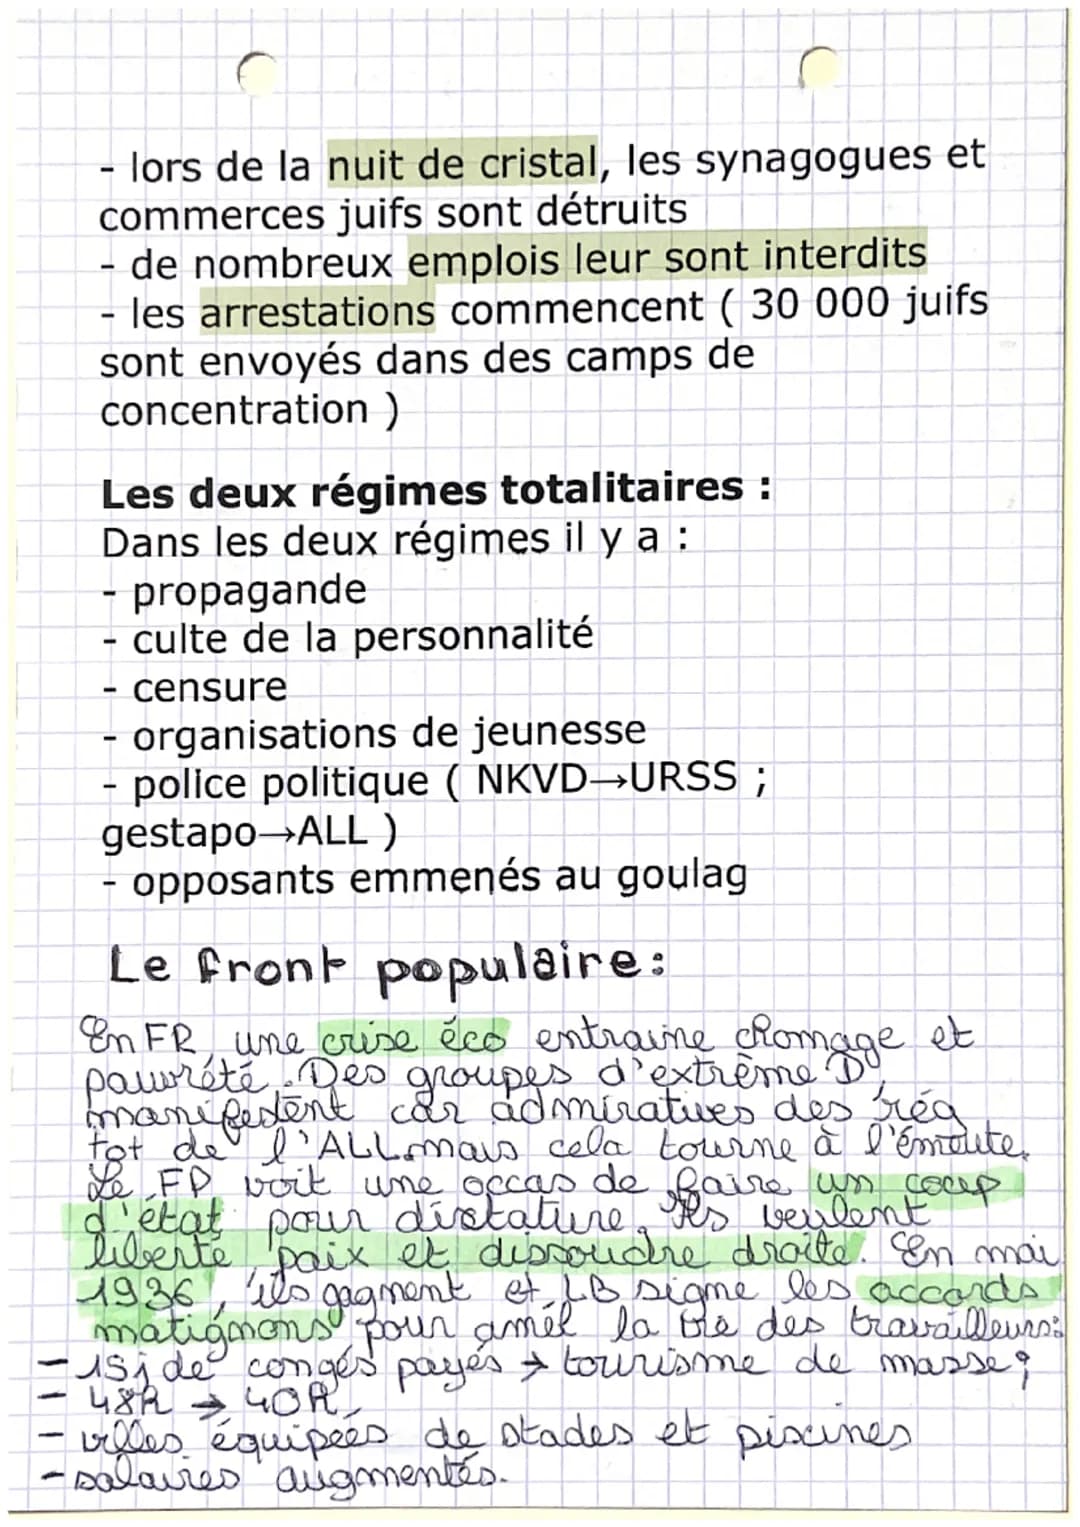 - lors de la nuit de cristal, les synagogues et
commerces juifs sont détruits
- de nombreux emplois leur sont interdits
- les arrestations commencent ( 30 000 juifs
sont envoyés dans des camps de
concentration )
Les deux régimes totalitaires :
Dans les deux régimes il y a :
- propagande
- culte de la personnalité
- censure
- organisations de jeunesse
- police politique ( NKVD→URSS ;
gestapo→ALL )
- opposants emmenés au goulag
Le front populaire:
En FR, une crise éco entraine chomage et
pauvrété. Des groupes d'extrême D
manifestent car admiratives des rég
tot de l'ALL mais cela tourne à l'émeute.
Le FP voit une occas de faire un coup
d'état pour dictature. Ils veulent
liberté, paix et dissoudre droite. En mai
1936, ils gagment et LB signe les accords
matignons pour amél la vie des travailleurs:
- 15j de congés payés → tourisme de masse;
- 48h → 40h,
- villes équipées de stades et piscines
- salaires augmentés.